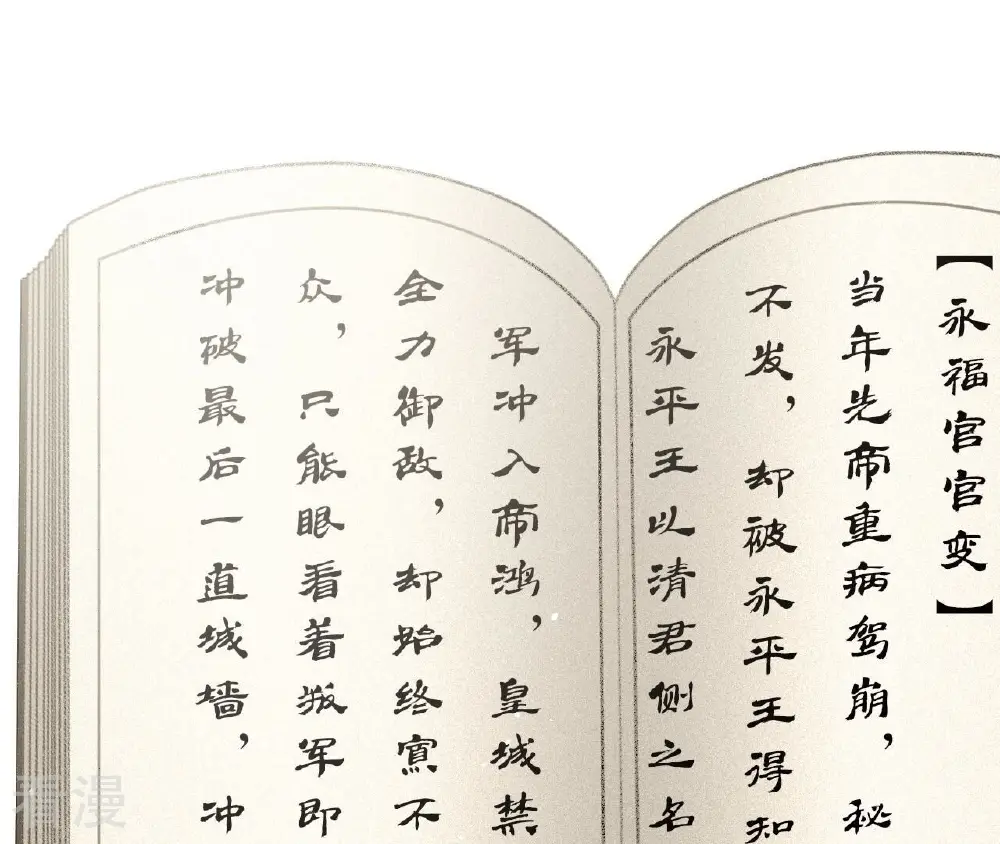 【永福官官变】
当年先帝重病驾崩，秘
不发，却被永平王得知
永平王以清君侧之名
军冲入帝鸿，皇城禁
全力御敌，却始终寡不
众，只能眼看着叛军即
冲破最后一道城墙，冲
看漫